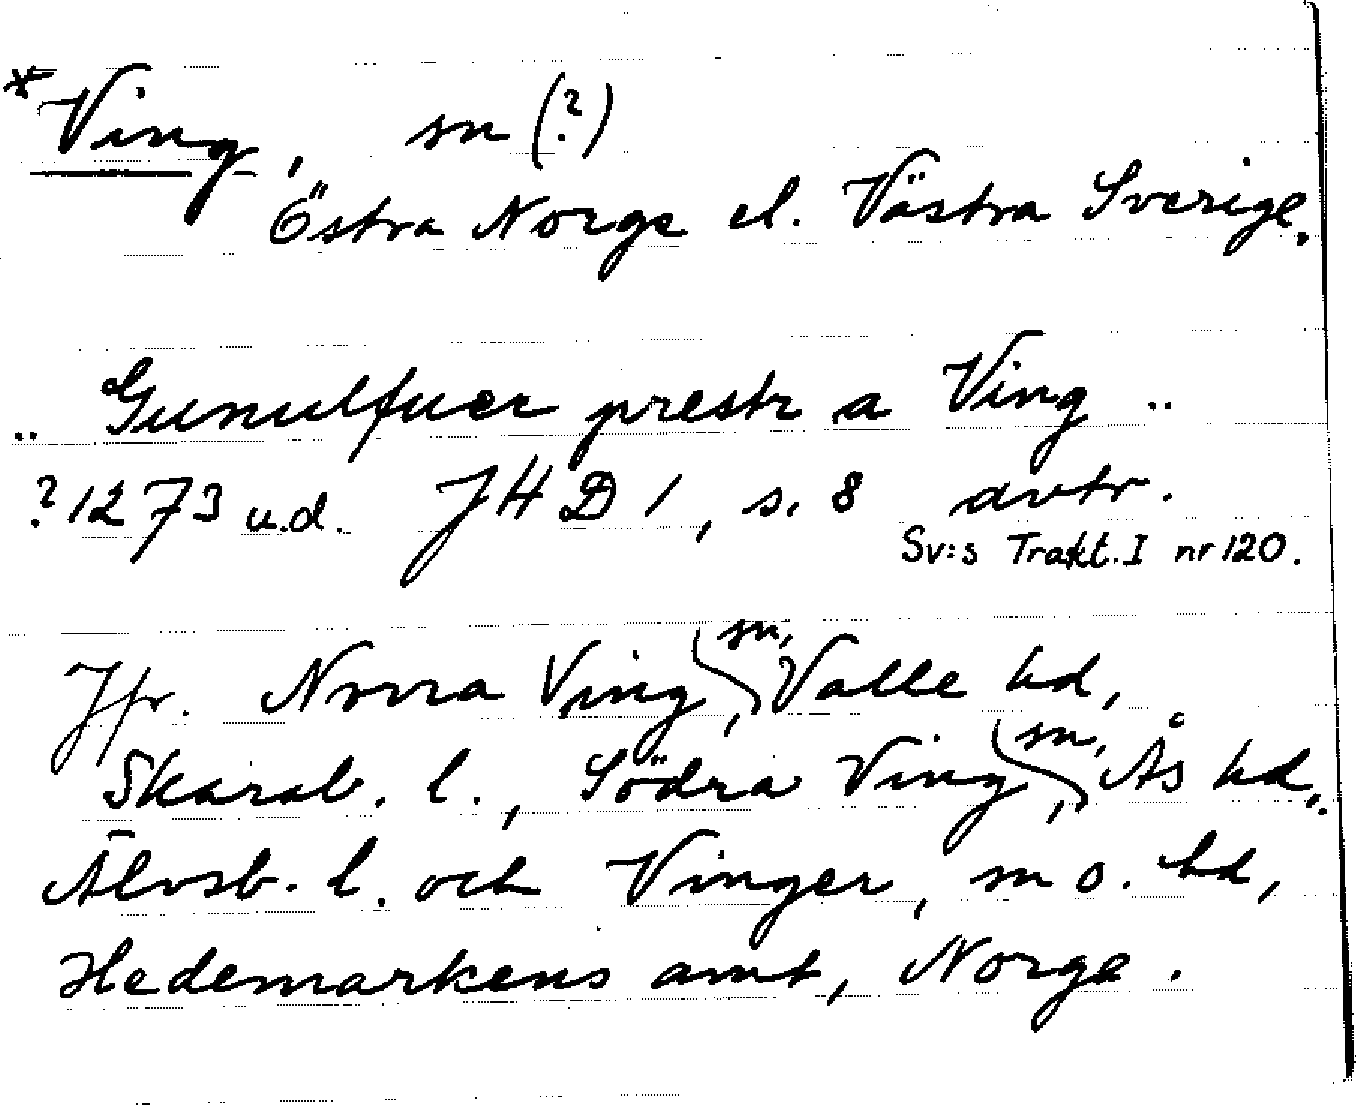 *Ving, sn (?)
Östra Norge el. Västra Sverige.
.. Gunulfuer prestr a Ving ..
? 1273 u.d. JHD 1, s. 8 avtr.
Sv:s Trakt. I nr 120.
Jfr. Norra Ving, sn, Valle hd,
Skarab. l., Södra Ving, sn, Ås hd,
Älvsb. l. och Vinger, sn o. hd,
Hedemarkens amt, Norge.